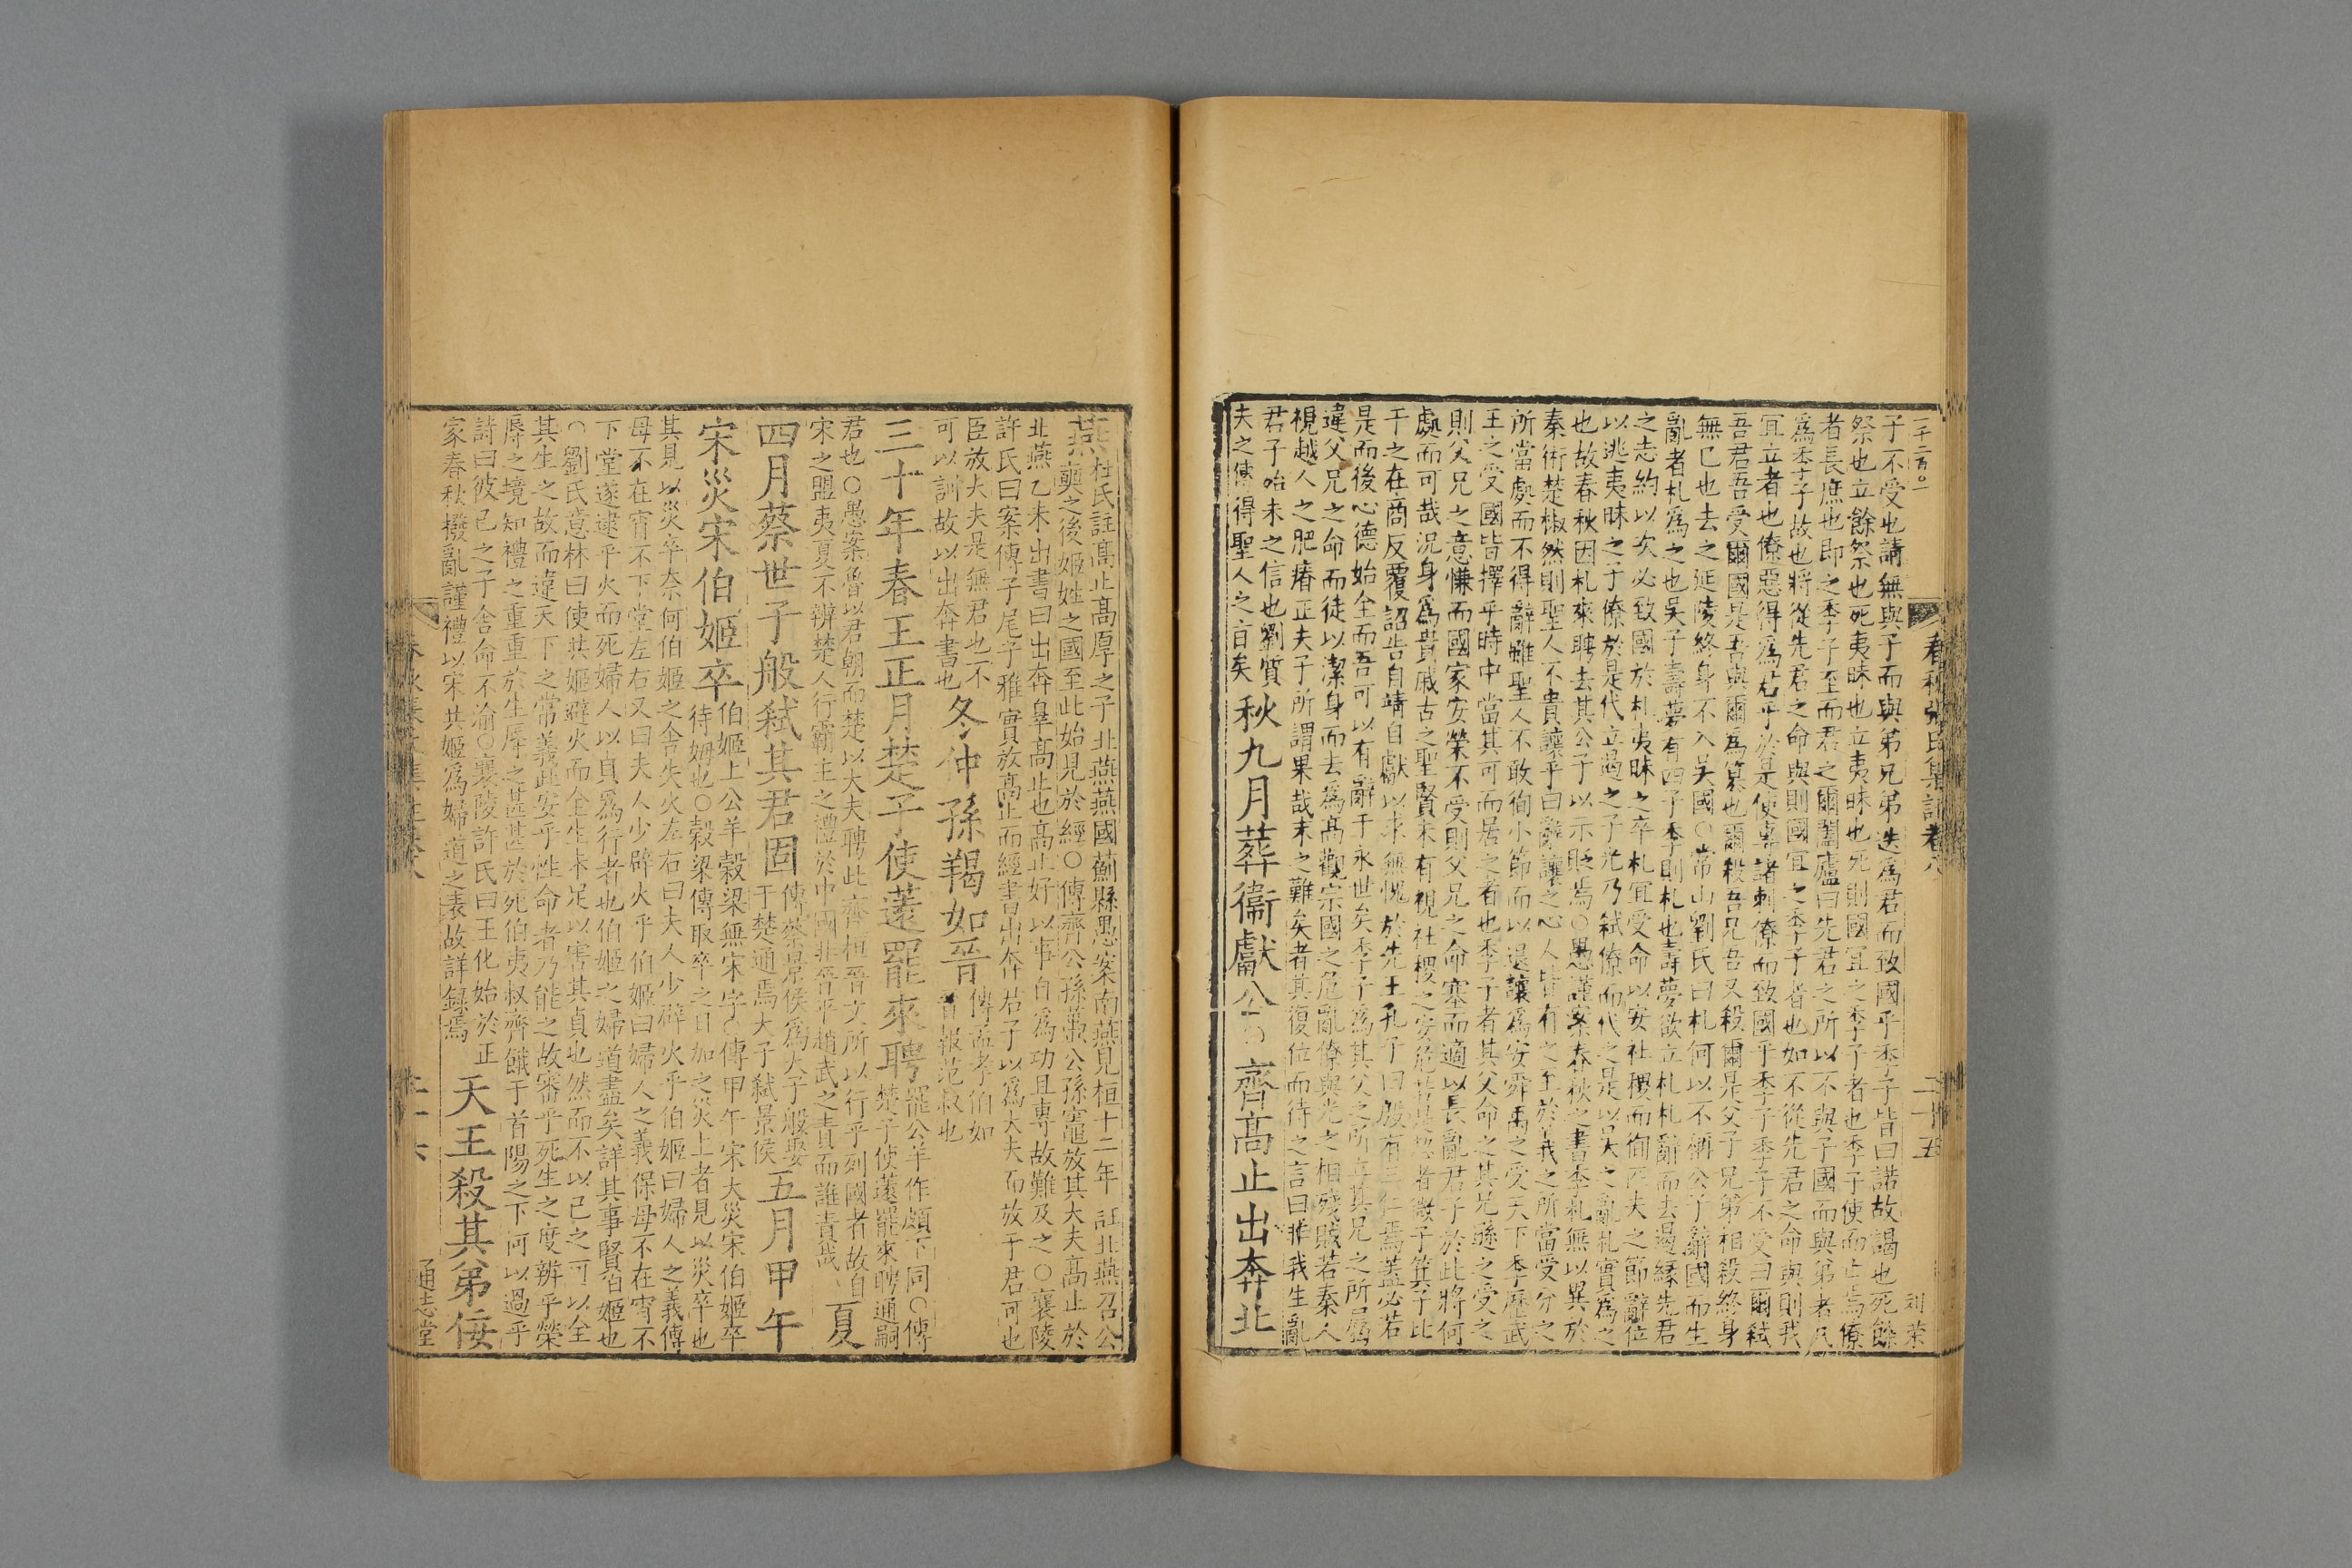 子不受也請無與子而與弟兄弟迭為君而致國乎季子皆曰諾故謁也死餘
祭也立餘祭也死夷昧也立夷昧也死則國宜之季子者也季子使而亡焉僚
者長庶也即之季子至而君之爾闔廬曰先君之所以不與子國而與弟者凡
為季子故也將從先君之命與則國宜之季子者也如不從先君之命與則我
宜立者也僚惡得為君乎於是使專諸刺僚而致國乎季子季子不受曰爾弒
吾君吾受爾國是吾與爾為篡也爾殺吾兄吾又殺爾是父子兄弟相殺終身
無已也去之延陵終身不入吳國○常山劉氏曰札何以不稱公子辭國而生
亂者札為之也吳子壽夢有四子季則札也壽夢欲立札札辭而去遏緣先君
之志約以次必致國於札夷昧之卒札宜受命以安社稷而徇匹夫之節辭位
以逃夷昧之子僚於是代立遏之子光乃弒僚而代之是以吳之亂札實為之
也故春秋因札來聘去其公子以示貶焉○愚謹案春秋之書季札無以異於
秦術楚椒然則聖人不貴讓乎曰辭讓之心人皆有之至於義之所當受分之
所當處而不得辭雖聖人不敢徇小節而以退讓為安舜禹之受天下季歷武
王之受國皆擇乎時中當其可而居之者也季子者其父命之其兄遜之受之
則父兄之意慊而國家安榮不受則父兄之命塞而適以長亂君子於此將何
處而可哉況身為貴戚古之聖賢未有視社稷之安危昔者微子箕子比
干之在商反覆詔告自靖自獻以求無愧於先王孔子曰殷有三仁焉蓋必若
是而後心德始全而吾可以有辭于永世矣季子為其父之所立其兄之所屬
違父兄之命而徒以潔身而去為高觀宗國之危亂僚與光之相殘賊若秦人
視越人之肥瘠正夫子所謂果哉末之難矣者其復位而待之言曰非我生亂
君子哈未之信也劉質
夫之使得聖人之旨矣秋九月葬衞獻公○齊高止出奔北
春秋張氏集註卷八
二十五
燕杜氏註高止高厚之子北燕燕國薊縣愚案南燕見桓十二年註北燕召公
奭之後姬姓之國至此始見於經○傳齊公孫蠆公孫竈放其大夫高止於
北燕乙未出書曰出奔辠高止也高止好以事自為功且專故難及之○襄陵
許氏曰案傳子尾子雅實放高止而經書出奔君子以為大夫而放于君可也
臣放大夫是無君也不
可以訓故以出奔書也冬仲孫羯如晉傳孟孝伯如
晉報范叔也
三十年春王正月楚子使薳罷來聘罷公羊作頗下同○傳
楚子使薳罷來聘通嗣
君也○愚案魯以君朝而楚以大夫聘此齊桓晉文所以行乎列國者故自
宋之盟夷夏不辨楚人行霸主之禮於中國非晉平趙武之責而誰責哉夏
四月蔡世子般弒其君固傳蔡景侯為大子般娶
于楚通焉大子弒景侯五月甲午
宋災宋伯姬卒伯姬上公羊穀梁無宋字○傳甲午宋大災宋伯姬卒
待姆也○穀梁傳取卒之日加之災上者見以災卒也
其見以災卒奈何伯姬之舍失火左右曰夫人少辟火乎伯姬曰婦人之義傅
母不在宵不下堂左右又曰夫人少辟火乎伯姬曰婦人之義保母不在宵不
下堂遂逮乎火而死婦人以貞為行者也伯姬之婦道盡矣詳其事賢伯姬也
○劉氏意林曰使共姬避火而全生未足以害其貞也然而不以己之可以全
其生之故而違天下之常義此安乎性命者乃能之故審乎死生之度辨乎榮
辱之境知禮之重重於生辱之甚甚於死伯夷叔齊餓于首陽之下何以過乎
詩曰彼己之子舍命不渝○襄陵許氏曰王化始於正
家春秋撥亂謹禮以宋共姬為婦道之表故詳錄焉天王殺其弟佞
二十六
通志堂